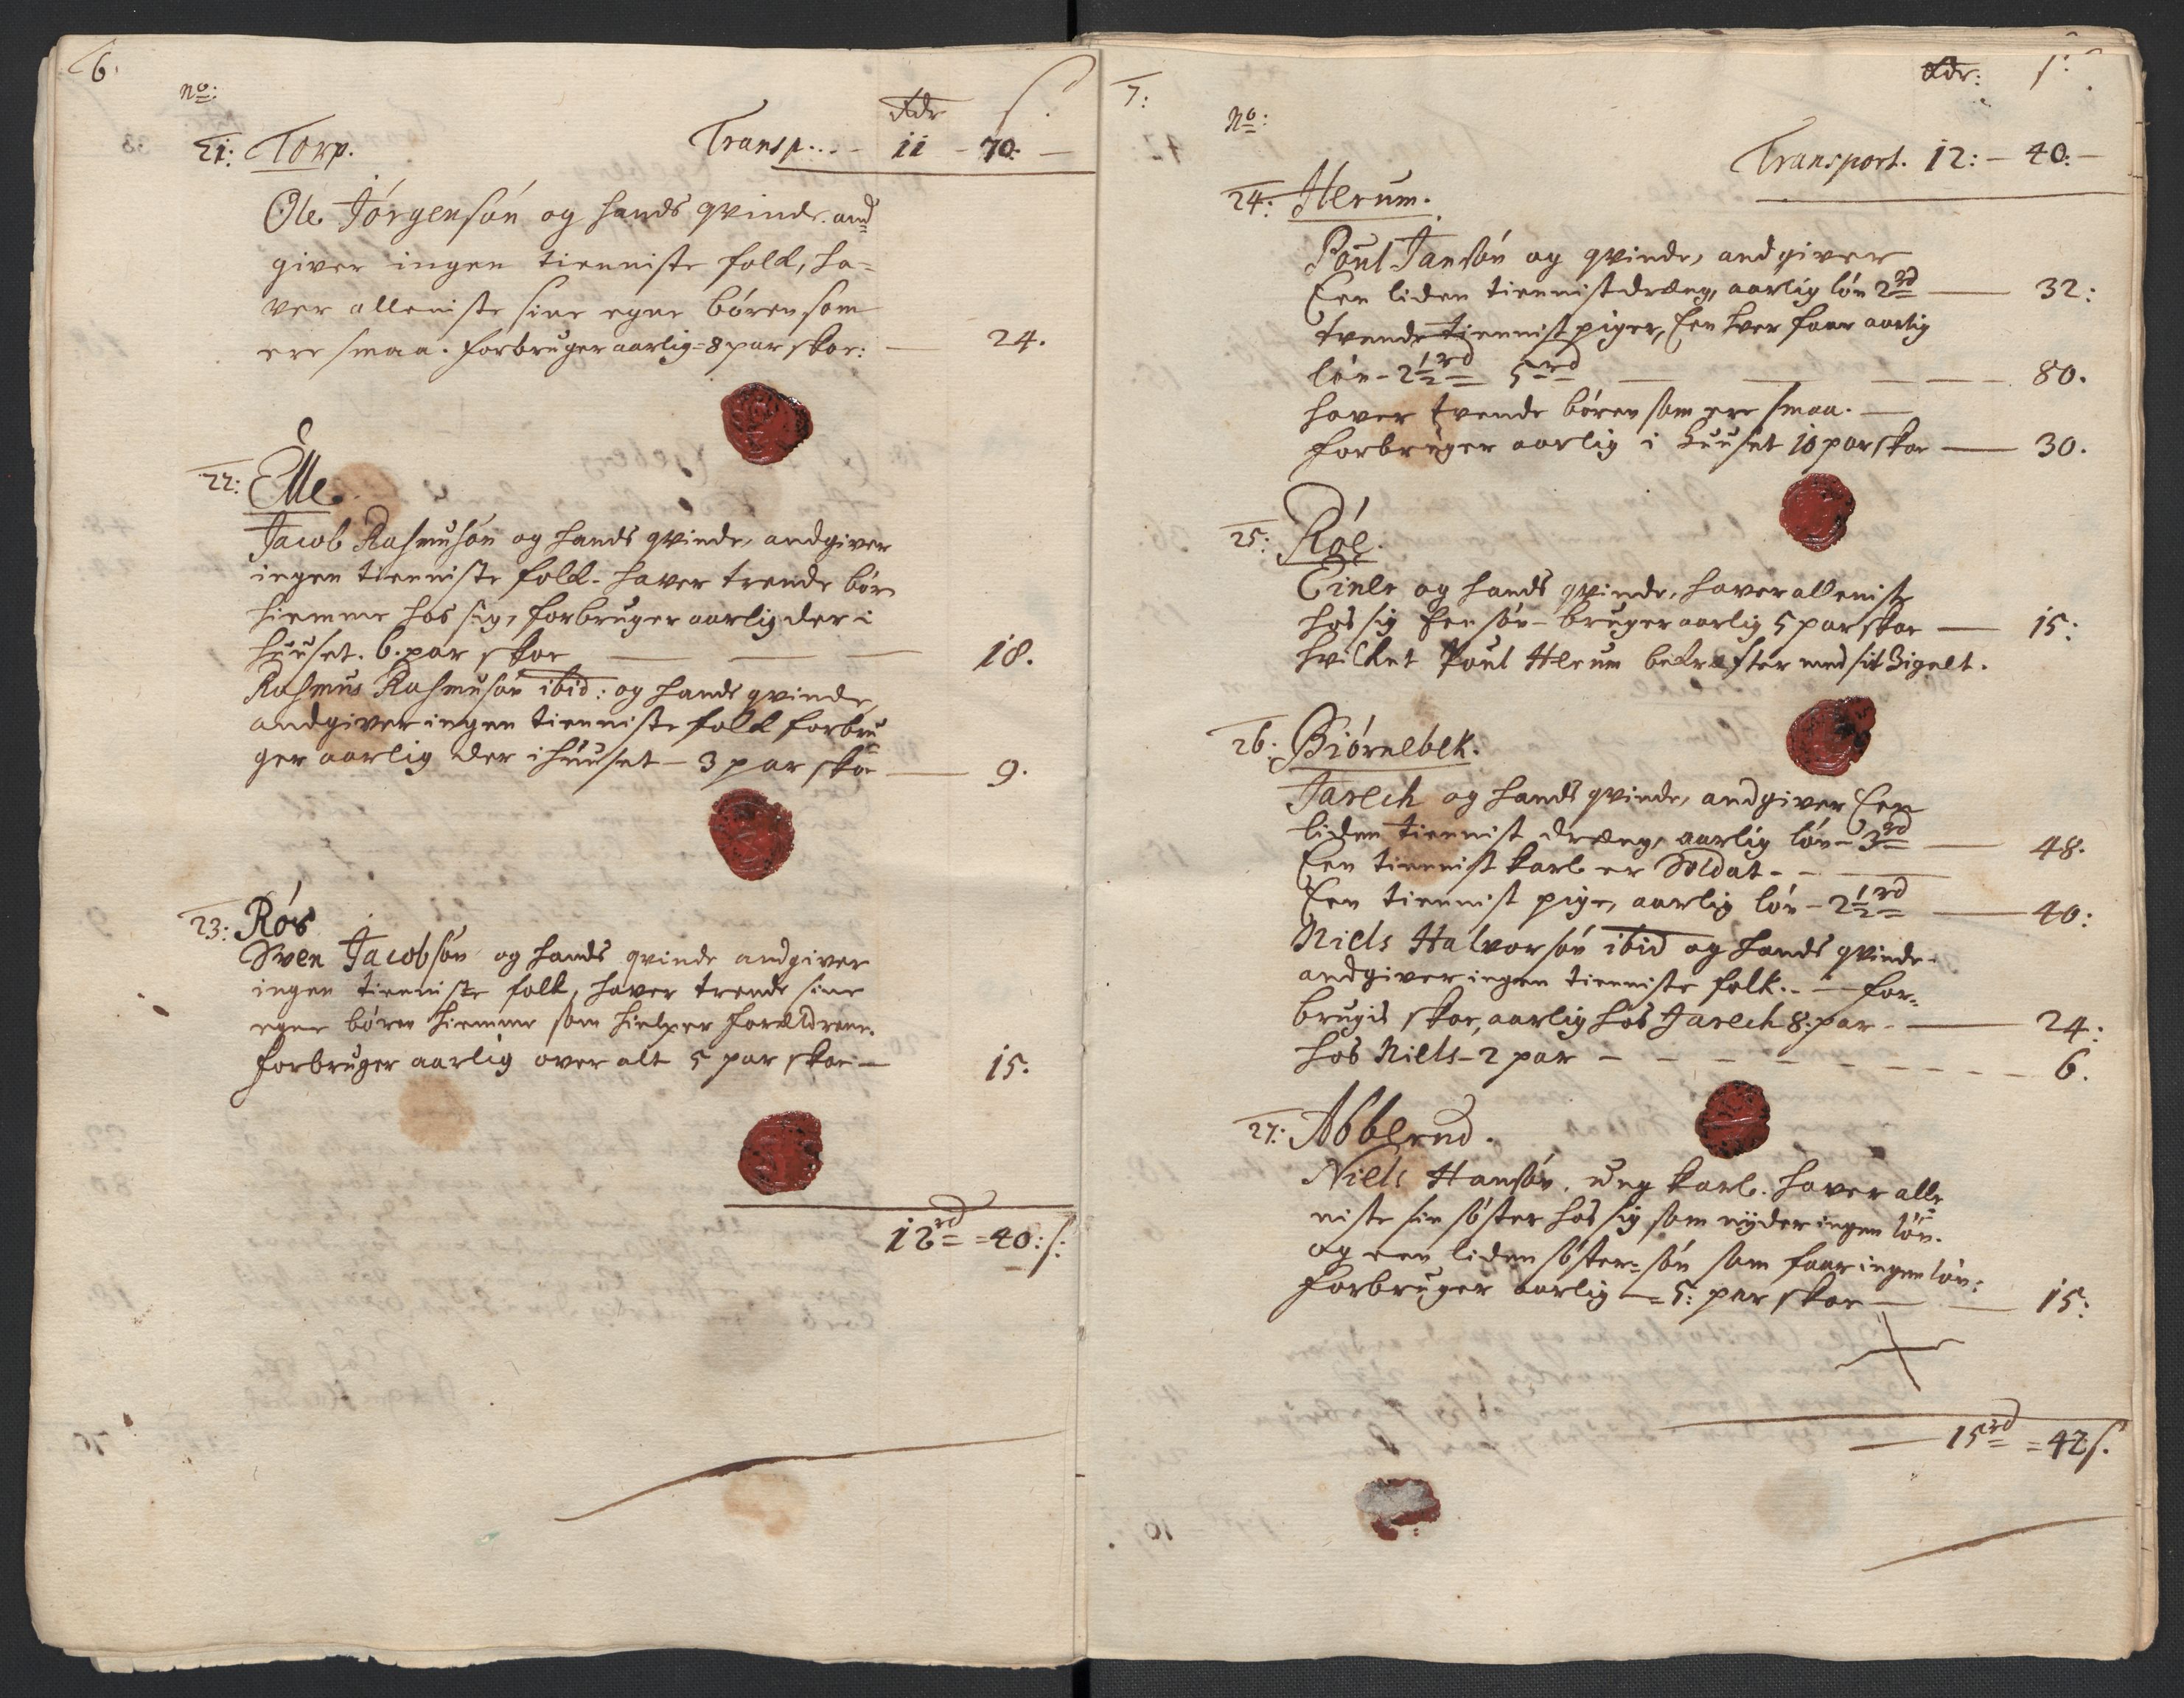 6.
No:
Rdr s
21: Torp. Transp... - 11 - 70: -
Ole Jörgensön og hands qvinde and
giver ingen tienniste folck, ha-
ver alleniste sine egne bören som
ere smaa. forbruger aarlig = 8 par skoe: — 24.
22: Elle.
Jacob Rasmusön og hands qvinde, andgiver
ingen tienniste folck. haver trende bör
hiemme hos sig, forbruger aarlig der i
huuset. 6. par skoe — — — 18.
Rasmus Rasmusön ibid: og hands qvinde
andgiver ingen tienniste folck forbru
ger aarlig der i huuset - 3 par skoe — 9.
23: Rös
Sven Jacobsön og hands qvinde andgiver
ingen tienniste folck, haver trende sine
egne börn hiemme som hielper forældrene.
forbruger aarlig over alt 5 par skoe — 15.
12 rd = 40: s:
7:
Rdr: s:
No:
Transport. 12: - 40: -
24: Herum.
Poul Jansön og qvinde, andgiver
Een liden tiennistdreng, aarlig lön 2 rd — 32:
tvende tiennist piger, Een hver faar aarlig
lön - 2 1/2 rd 5 rd — — — — 80.
haver tvende bören som ere smaa. —
forbruger aarlig i huuset 10 par skoe — 30.
25: Röe.
Einer og hands qvinde, haver alleniste
hos sig Een sön - bruger aarlig 5 par skoe — 15:
hvilket Poul Herum bekrefter med sit Zigelt.
26: Biörnebek.
Jasech og hands qvinde, andgiver Een
liden tiennist dreng, aarlig lön - 3 rd — 48.
Een tiennist karl er Soldat - -
Een tiennist pige, aarlig lön - 2 1/2 rd — 40:
Niels Halvorsön ibid og hands qvinde
andgiver ingen tienniste folk. - — for-
brugis skoe, aarlig hos Jasech 8: par - — 24:
hos Niels - 2 par - - - - - - 6.
27: Abbernd.
Niels Hansön, ung karl. haver alle
niste sin söster hos sig som nyder ingen lön.
og een liden söster-sön som faar ingen lön:
forbruger aarlig = 5: par skoe — — 15:
— 15 rd = 42 s.